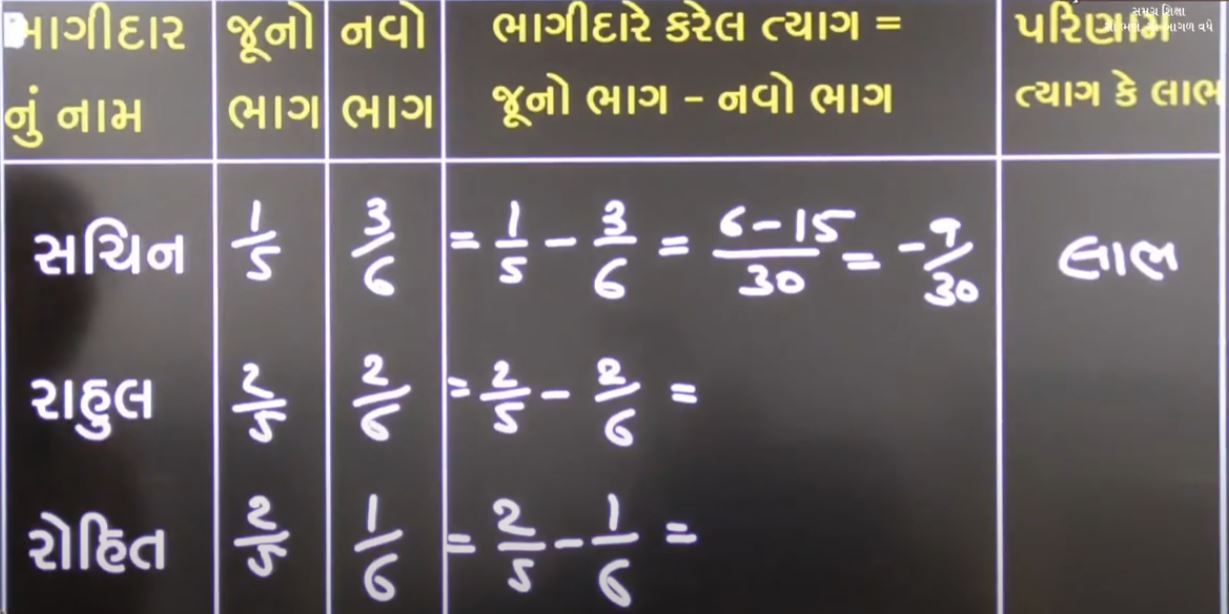 ભાગીદાર નું નામ | જૂનો ભાગ | નવો ભાગ | ભાગીદારે કરેલ ત્યાગ = જૂનો ભાગ - નવો ભાગ | પરિણામ ત્યાગ કે લાભ
સમગ્ર શિક્ષા
સચિન | 1/5 | 3/6 | = 1/5 - 3/6 = 6-15/30 = -9/30 | લાભ
રાહુલ | 2/5 | 2/6 | = 2/5 - 2/6 =
રોહિત | 2/5 | 1/6 | = 2/5 - 1/6 =